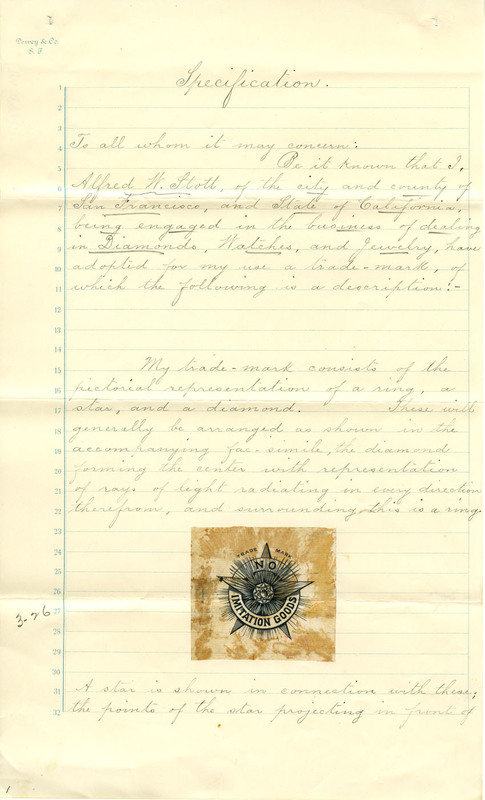 Dewey & Co.
S. F.
Specification.
1
2
3
4 To all whom it may concern:
5 Be it known that I,
6 Alfred W. Stott, of the city and county of
7 San Francisco, and State of California,
8 being engaged in the business of dealing
9 in Diamonds, Watches, and Jewelry, have
10 adopted for my use a trade-mark, of
11 which the following is a description:-
12
13
14
15 My trade-mark consists of the
16 pictorial representation of a ring, a
17 star, and a diamond. These will
18 generally be arranged as shown in the
19 accompanying fac-simile, the diamond
20 forming the center with representation
21 of rays of light radiating in every direction
22 therefrom, and surrounding this is a ring.
23
24
TRADE MARK
25
NO
26
IMITATION GOODS
3-26
27
28
29
30
31 A star is shown in connection with these;
32 the points of the star projecting in front of
1